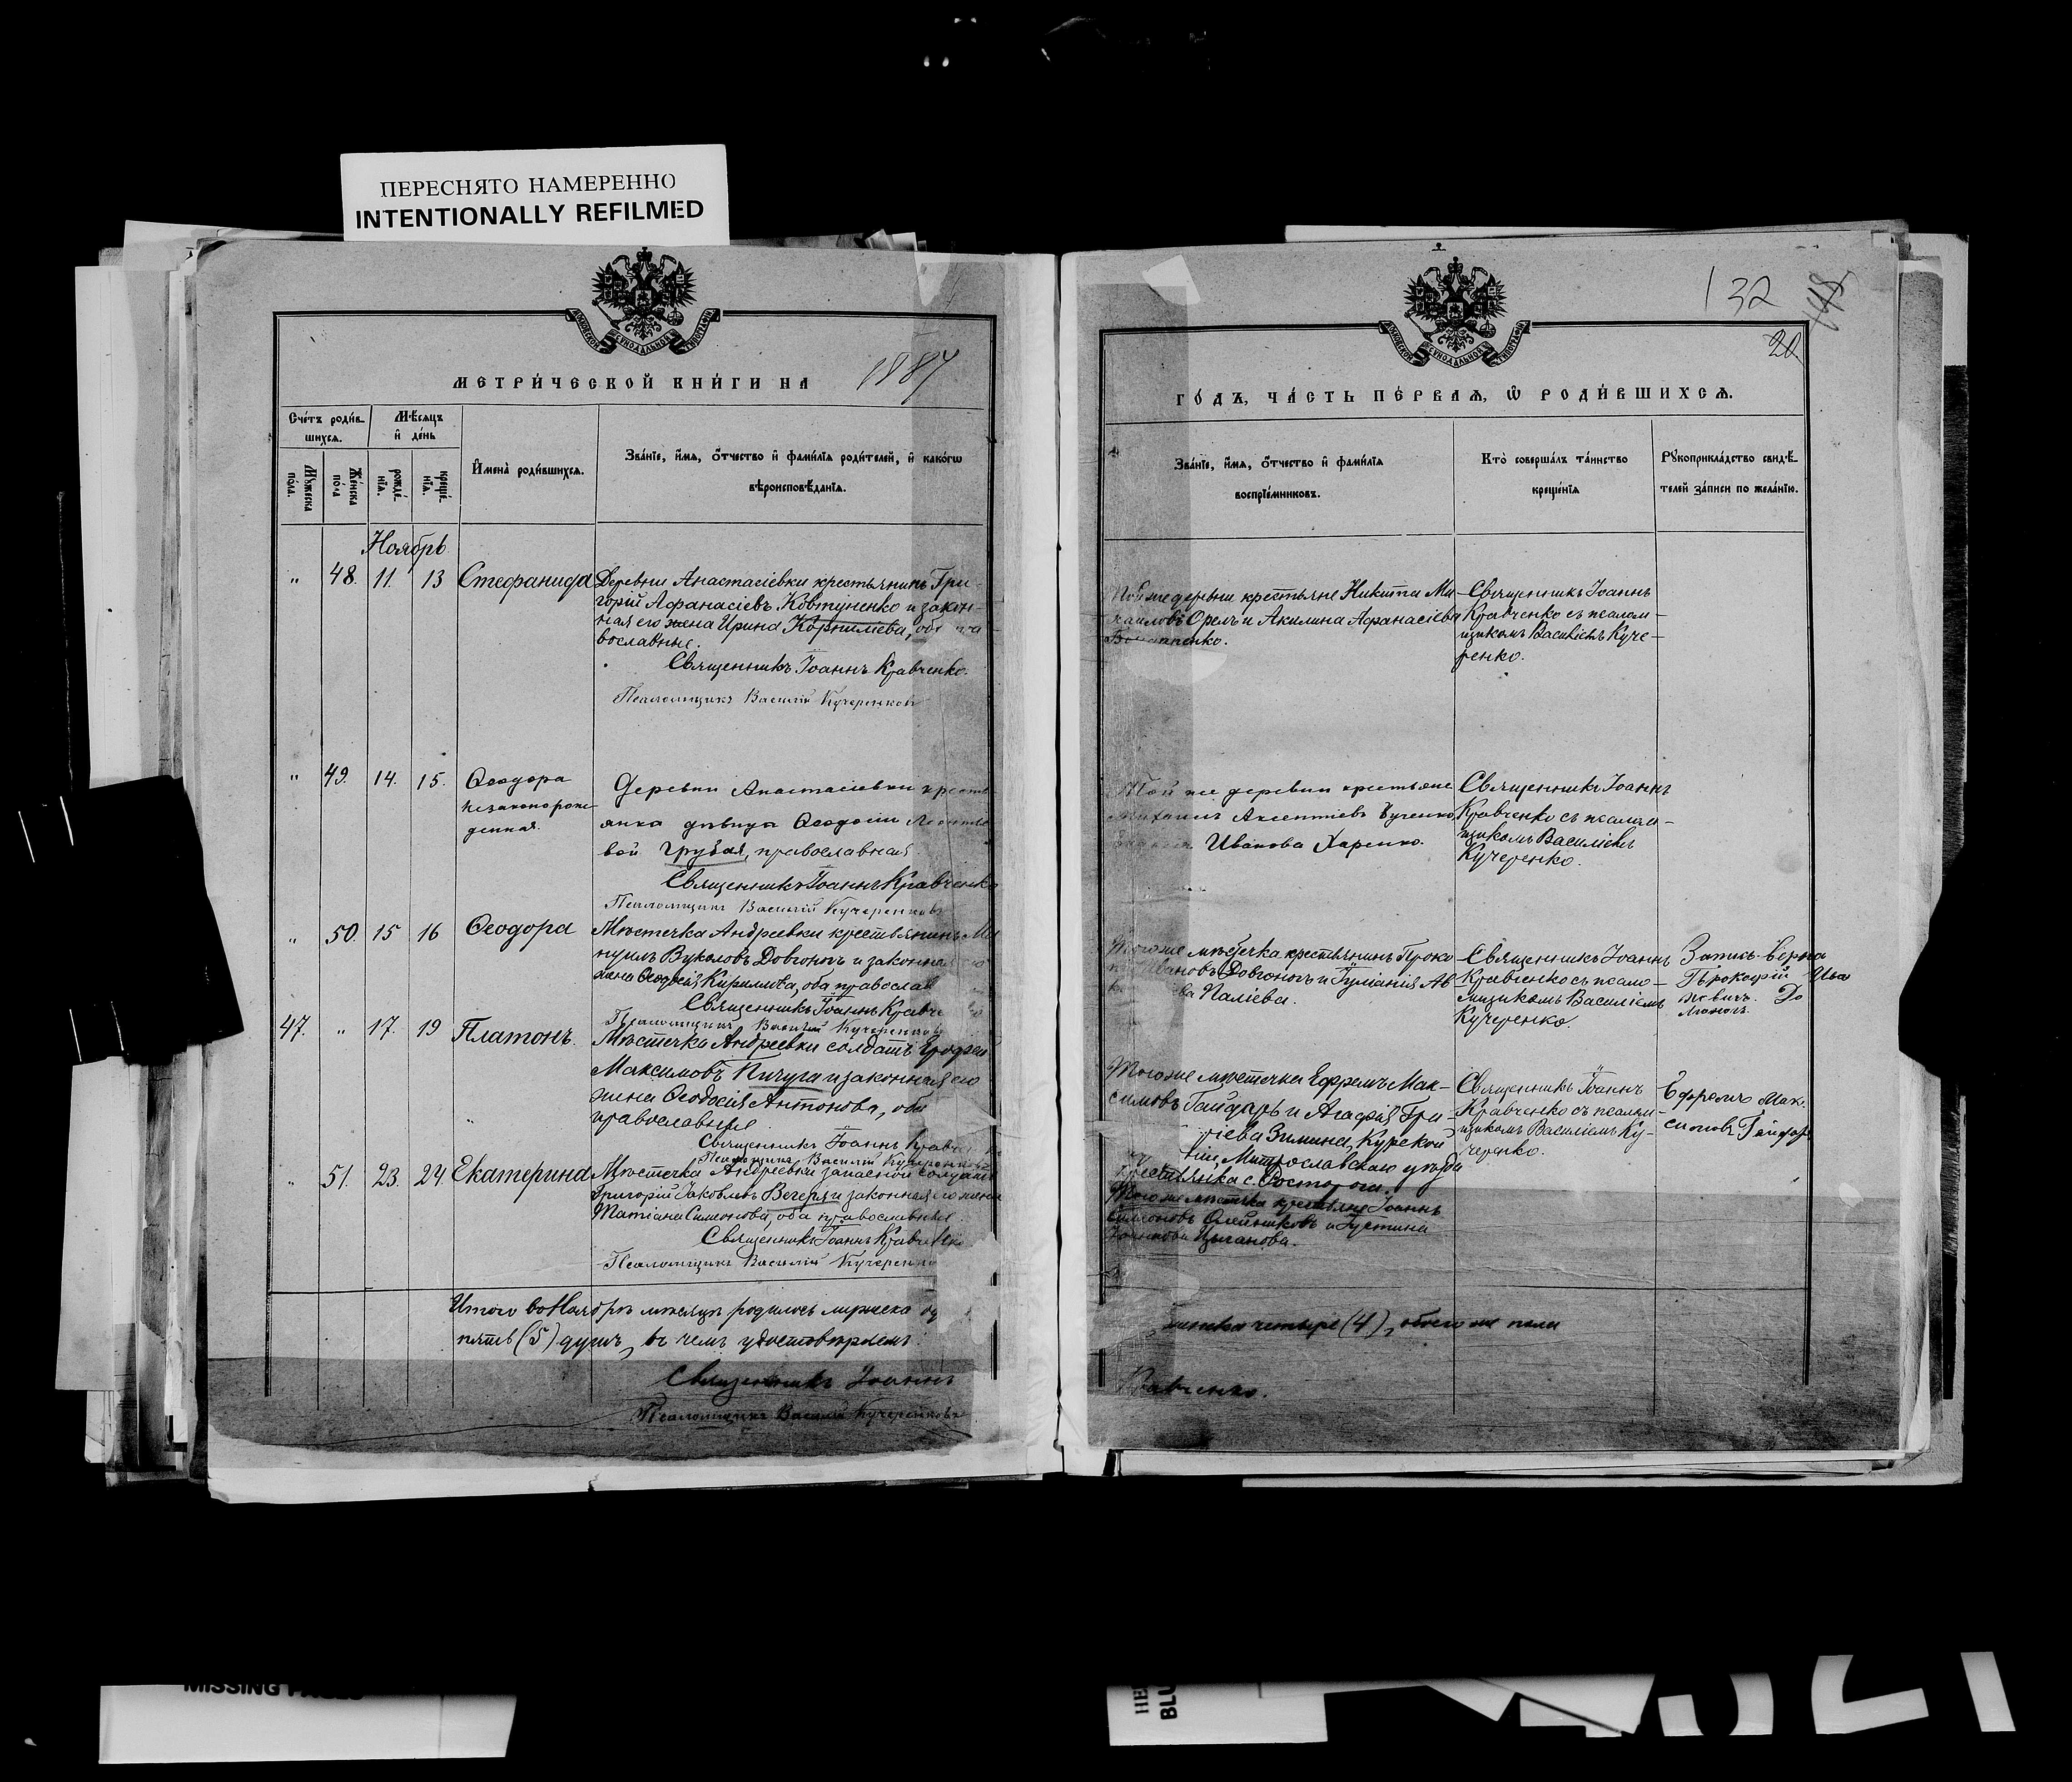 ПЕРЕСНЯТО НАМЕРЕННО
INTENTIONALLY REFILMED
МЕТРИ́ЧЕСКОЙ КНИ́ГИ НА 1887
Сче́тъ роди́в-
шихся.
Мѣ́сяцъ
и҆ де́нь
Мꙋ́жеска
по́ла.
Же́нска
по́ла
рожде́-
нїѧ.
креще́-
нїѧ.
И҆мена̀ роди́вшихсѧ.
Зва́нїе, и҆́мѧ, ѻ҆́тчество и҆ фами́лїѧ роди́телей, и҆ како́гѡ
вѣроисповѣ́данїѧ.
Ноябрь
" 48. 11. 13 Стефанида
Деревни Анастасіевки крестьянинъ Гри-
горій Афанасіевъ Ковтуненко и закон-
ная его жена Ирина Корниліева, оба
вославные.
Священникъ Іоаннъ Кравченко.
Псаломщикъ Василій Кучеренковъ
" 49. 14. 15. Ѳеодора
незаконорож-
денная.
Деревни Анастасіевки кресть
янка дѣвица Ѳеодосіи
вой Грубая, православная
Священникъ Іоаннъ Кравченко
Псаломщикъ Василій Кучеренковъ
" 50. 15 16 Ѳеодора
Мѣстечка Андреевки крестьянинъ Ма
нуилъ Вуколовъ Довгоногъ и законная его
жена Ѳеодосія Кирилова, оба православ
Священникъ Іоаннъ Кравче
Псаломщикъ Василій Кучеренковъ
47. " 17. 19 Платонъ.
Мѣстечка Андреевки солдатъ Ерофей
Максимовъ Пичуга и законная его
жена Ѳеодосія Антонова, оба
православные
Священникъ Іоаннъ Кравче
Псаломщикъ Василій Кучеренковъ
" 51. 23. 24. Екатерина
Мѣстечка Андреевки запасной солдатъ
Григорій Іаковлевъ Вечеря и законная его жена
Татіана Симеонова, оба православные.
Священникъ Іоаннъ Кравченко
Псаломщикъ Василій Кучеренко
Итого въ Ноябрѣ мѣсяцѣ родилось мужеска
пять (5) душъ, въ чемъ удостовѣряемъ:
Священникъ Іоаннъ
Псаломщикъ Василій Кучеренковъ
132
20
ГО́ДЪ, ЧА́СТЬ ПЕ́РВАѦ, Ѡ҆ РОДИ́ВШИХСѦ.
Зва́нїе, и҆́мѧ, ѻ҆́тчество и҆ фами́лїѧ
воспрїе́мниковъ.
Кто̀ соверша́лъ та́инство
креще́нїѧ
Рꙋкоприкла́дство свидѣ́-
телей за́писи по жела́нїю.
Той же деревни крестьяне Никита Ми-
хаиловъ Орелъ и Акилина Афанасіева
Священникъ Іоаннъ
Кравченко съ псалом-
щикомъ Василіемъ Куче-
ренко.
Той же деревни крестьяне
Михаилъ Аксентіевъ
Иванова Харенко.
Священникъ Іоаннъ
Кравченко съ псалом-
щикомъ Василіемъ
Кучеренко.
Тогоже мѣстечка крестьянинъ Проко
Ивановъ Довгоногъ и Гуліанія Ав-
ва Паліева.
Священникъ Іоаннъ
Кравченко съ псало-
мщикомъ Василіемъ
Кучеренко.
Запись вѣрна
Прокофій Ива
новичъ До
Тогоже мѣстечка Ефремъ Мак-
симовъ Гайдарь и Агафія Гри-
ріева Зимина, Курской
уѣзда
крестьянка с.
Священникъ Іоаннъ
Кравченко съ псалом-
щикомъ Василіемъ Ку-
черенко.
Ефремъ Мак-
симовъ Гайдар
Тогоже мѣстечка крестьяне Іоаннъ
Симеоновъ Олейниковъ и Іустина
Цыганова.
женска четыре (4), обоего же пола
Кравченко.
MISSING PAGES